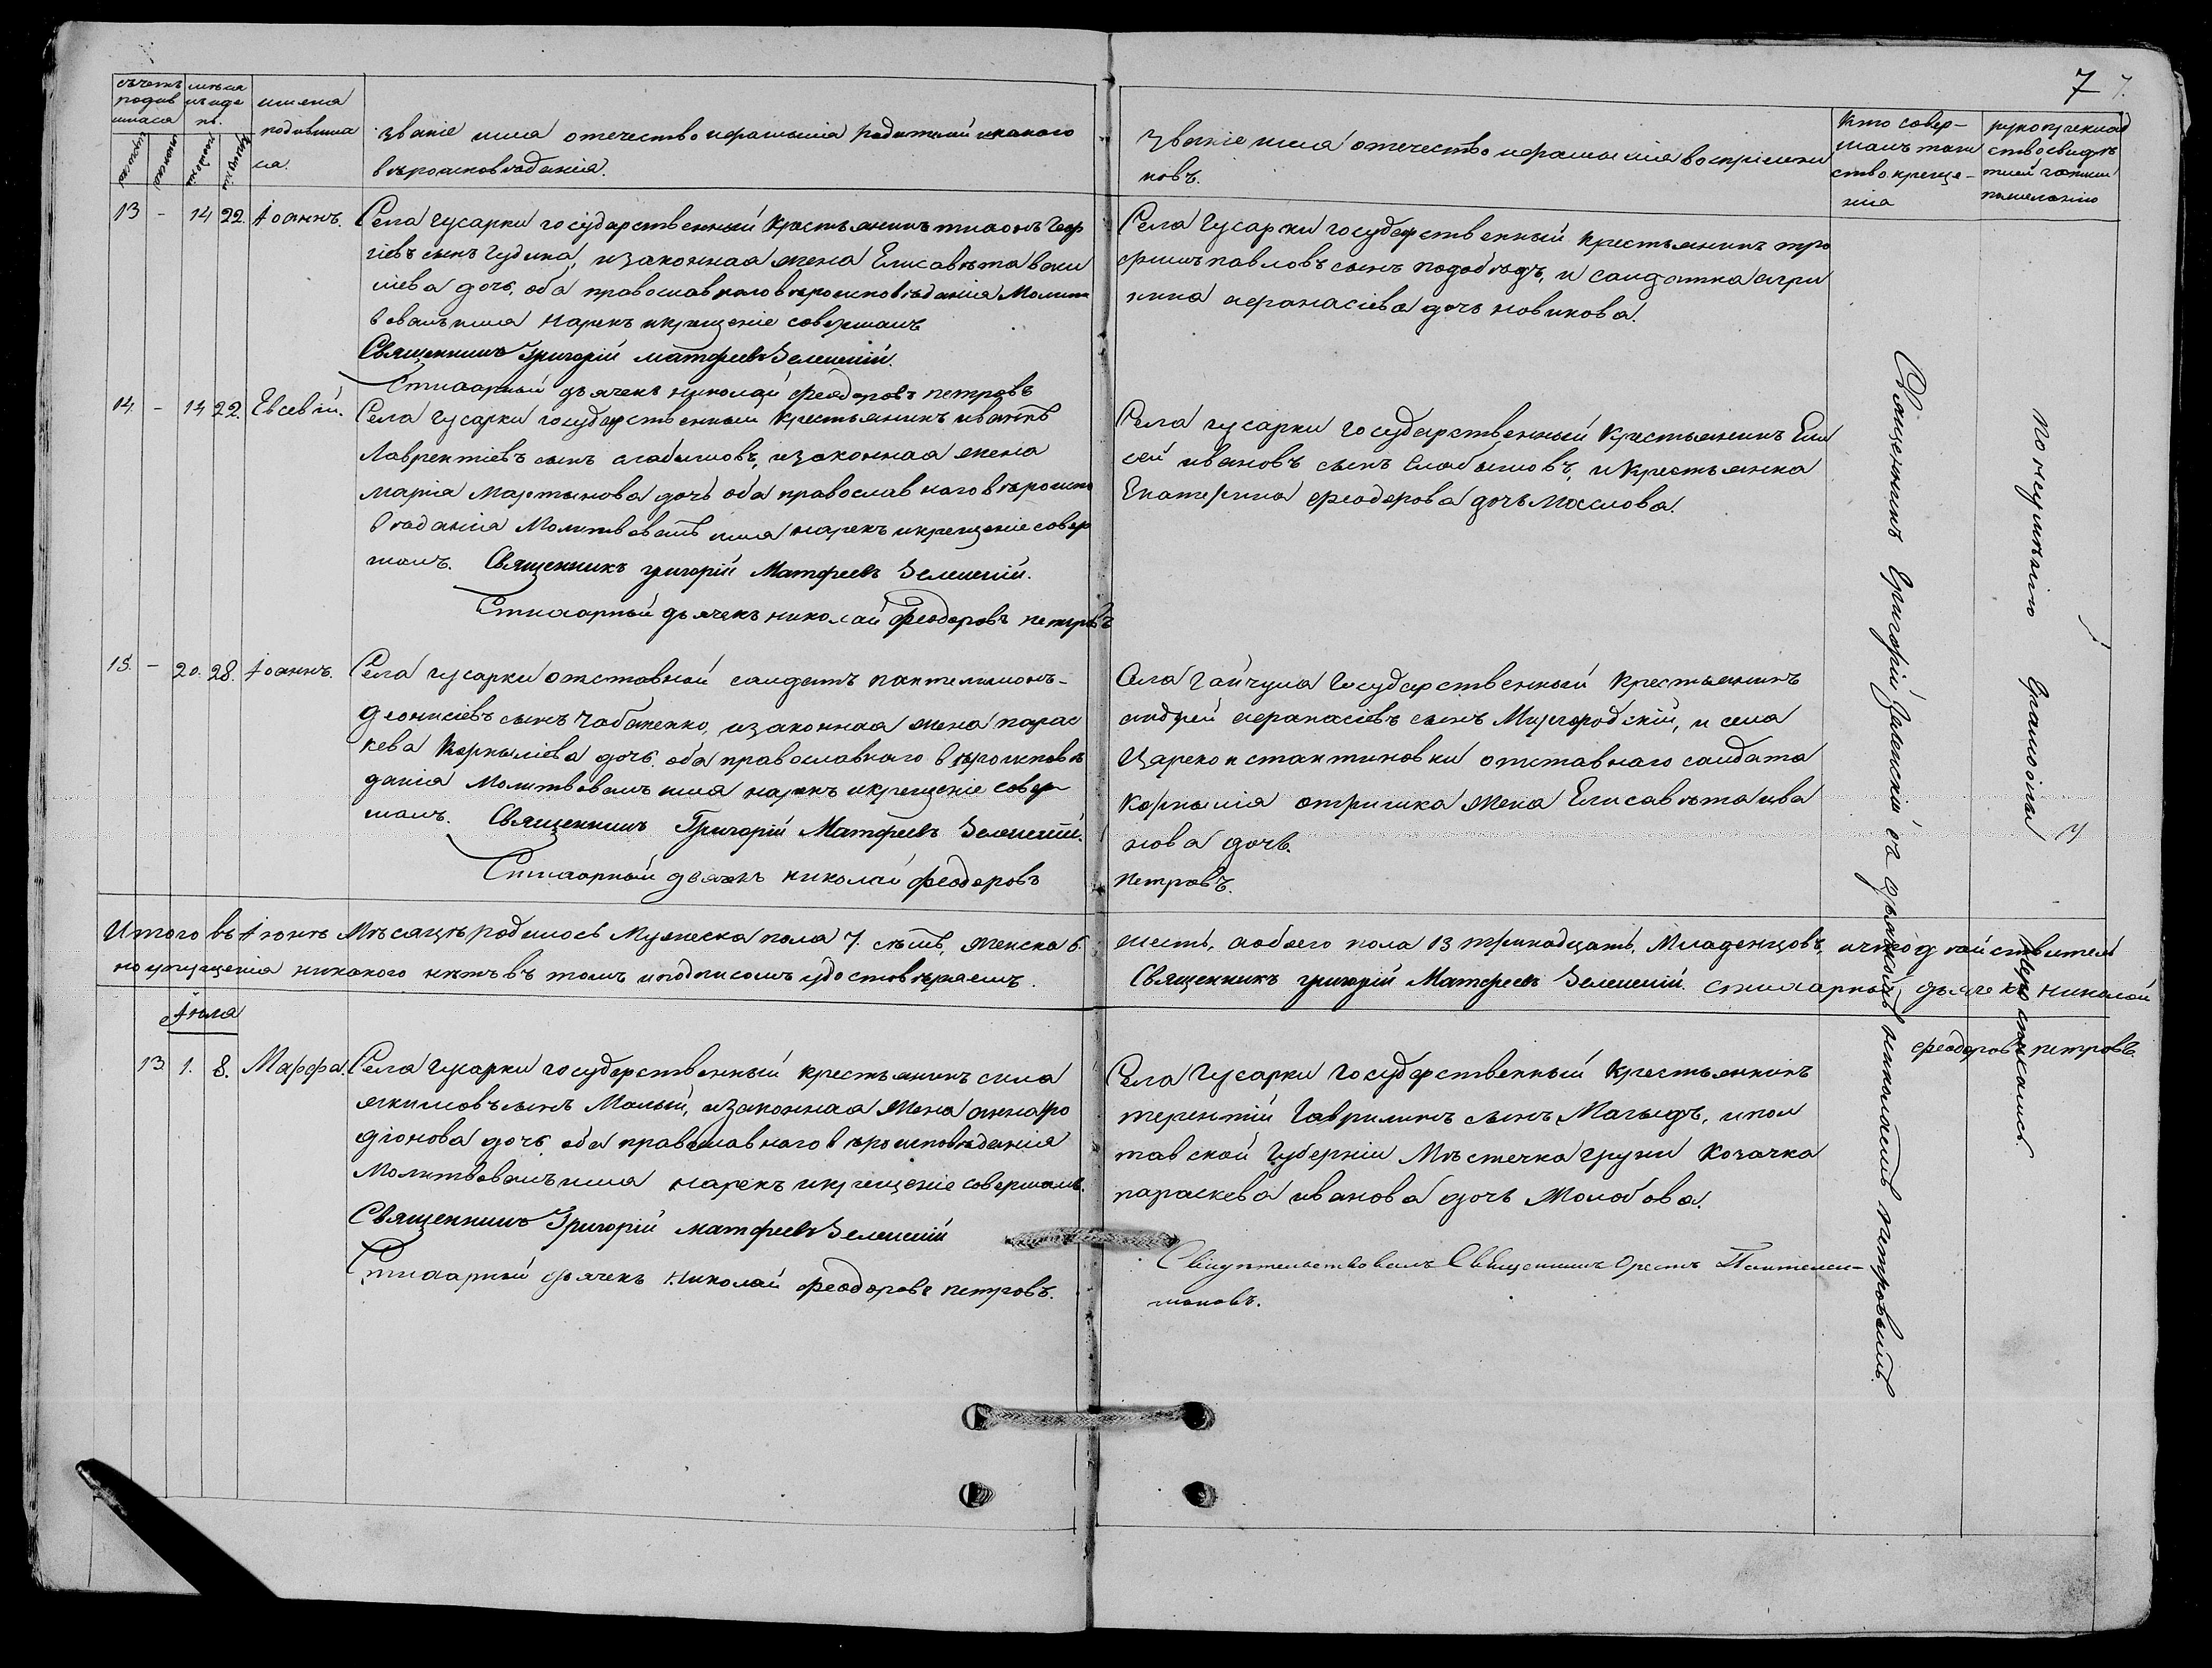 7 7.
счетъ родив шихся
мужеска
женска
мѣся цъ и де нь.
рожденія
крещенія
имена родившихся.
званіе имя отечество и фамилія родителей и какого
вѣроисповѣданія.
Званіе имя отечество и фамиліе воспріемни
ковъ.
Кто совер-
шалъ таин
ство креще-
нія
рукоприклад
ство свидѣ
телей записи
по желанію
13 - 14 22. Іоаннъ.
Села Гусарки государственный Крестьянинъ тихонъ Геор
гіевъ сынъ Гудина, и законная жена Елисавета васи
ліева дочь, оба православнаго вѣроисповѣданія Молит
вовалъ имя нарекъ и крещеніе совершалъ
Священникъ Григорій Матфеевъ Зеленскій.
Стихарный дьячекъ николай феодоровъ петровъ
Села Гусарки Государственный крестьянинъ тро
фимъ павловъ сынъ подобѣдъ, и салдатка агри
пина афанасіева дочь новикова.
14. - 14 22. Евсевій.
Села Гусарки государственный Крестьянинъ иванъ
Лаврентіевъ сынъ слабышовъ, и законная жена
марія Мартынова дочь оба православнаго вѣроиспо
вѣданія Молитвовалъ имя нарекъ и крещеніе совер
шалъ. Священникъ григорій Матфеевъ Зеленскій.
Стихарный дьячекъ николай феодоровъ петровъ
Села гусарки Государственный Крестьянинъ Ели
сей ивановъ сынъ Слабышовъ, и Крестьянка
Екатерина феодорова дочь Маслова.
15. - 20. 28. Іоаннъ.
Села гусарки отставной салдатъ пантелимонъ-
деонисіевъ сынъ Чабаненко, и законная жена парас
кева Корнылiева дочь. оба православнаго вѣроисповѣ
данія Молитвовалъ имя нарекъ и крещеніе совер
шалъ. Священникъ Григорій Матфеевъ Зеленскій.
Стихарный дьячекъ николай феодоровъ
Села Гайчула Государственный Крестьянинъ
андрей афанасіевъ сынъ Миргородскій, и села
Цареконстантиновки отставнаго салдата
Корнылія жена Елисавѣта ива
нова дочь.
петровъ.
Итого въ Іюнѣ Мѣсяцѣ родилось Мужеска пола 7. семь, женска 6.
шесть, а обоего пола 13 тринадцать, Младенцовъ, и что дѣйствитель
но упущенія никакого нѣтъ въ томъ и подписомъ удостовѣряемъ.
Священникъ григорій Матфеевъ Зеленскій. стихарный дьячекъ Николай
феодоровъ петровъ.
Іюля
13. 1. 8. Марфа.
Села Гусарки государственный крестьянинъ сила
якимовъ сынъ Малый, и законная жена анна ро
діонова дочь, оба православнаго вѣроисповѣданія
Молитвовалъ имя нарекъ и крещеніе совершалъ.
Священникъ Григорій Матфеевъ Зеленскій
Стихарный дьячекъ Николай феодоровъ петровъ.
Села Гусарки Государственный Крестьянинъ
терентій Гавриловъ сынъ и пол
тавской Губерніи Мѣстечка Груни Козачка
параскева иванова дочь Молобова.
Свидѣтельствовалъ Священникъ Орестъ Пантелеи-
моновъ.
Священникъ Григорій Зеленскій съ дьячкомъ николаемъ петровымъ.
По неумѣнію Грамоты не росписались.